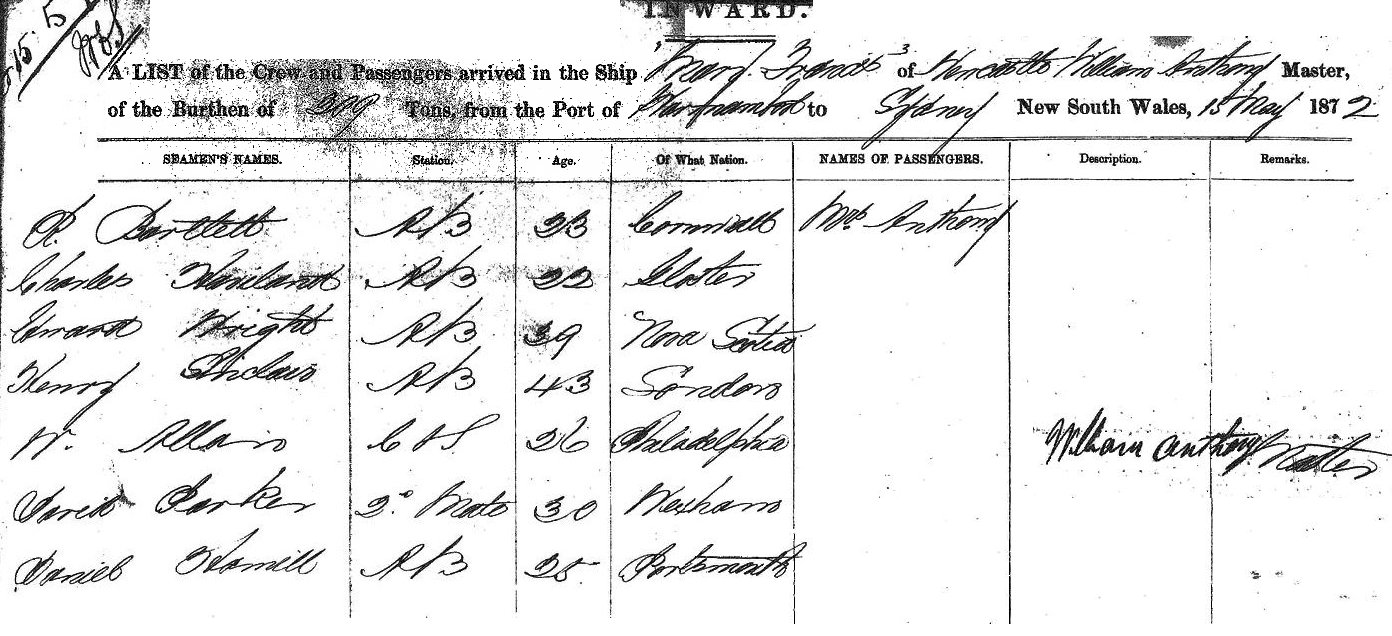 INWARD.
A LIST of the Crew and Passengers arrived in the Ship Mary Francis of Newcastle William Anthony Master,
of the Burthen of 309 Tons, from the Port of to Sydney New South Wales, 15 May 1872
SEAMEN'S NAMES. Station. Age. Of What Nation. NAMES OF PASSENGERS. Description. Remarks.
R. Bartlett A/B 23 Cornwall Mrs Anthony
Charles Haviland A/B 22 Gloster
Edward Wright A/B 39 Nova Scotia
Henry Sinclair A/B 43 London
W. Allan C & S 26 Philadelphia William Anthony Master
David Parker 2d Mate 30 Wexham
Daniel Hamill A/B 25 Portsmouth